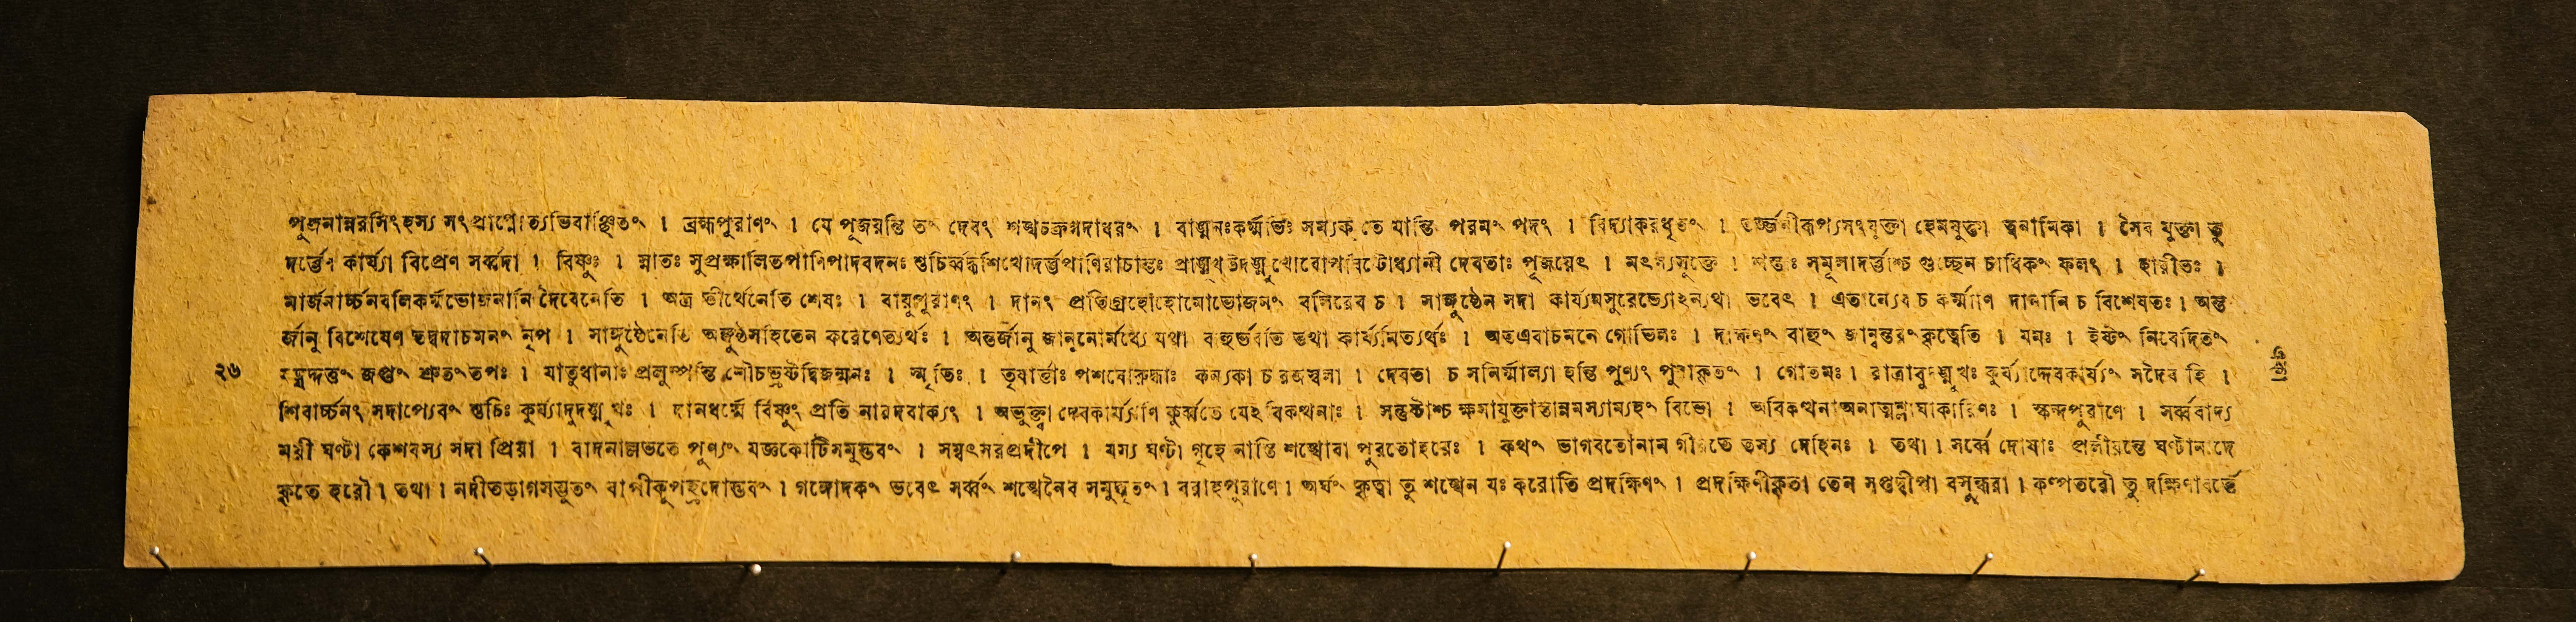 পূজনান্নরসিংহস্য সংপ্রাপ্নোত্যভিবাঞ্ছিতং । ব্রহ্মপুরাণং । যে পূজয়ন্তি তং দেবং শঙ্খচক্রগদাধরং । বাঙ্মনঃকর্ম্মভিঃ সম্যক্ তে যান্তি পরমং পদং । বিদ্যাকরধৃতং । তর্জ্জনীরূপ্যসংযুক্তা হেমযুক্তা ত্বনামিকা । সৈব যুক্তা তু
দর্ভেণ কার্য্যা বিপ্রেণ সর্ব্বদা । বিষ্ণুঃ । স্নাতঃ সুপ্রক্ষালিতপাণিপাদবদনঃ শুচির্বদ্ধশিখোদর্ভপাণিরাচান্তঃ প্রাঙ্মুখ উদঙ্মুখোবোপবিষ্টোধ্যানী দেবতাঃ পূজয়েৎ । মৎস্যসূক্তে । শস্তাঃ সমূলাদর্ভাশ্চ গুচ্ছেন চাধিকং ফলং । হারীতঃ ।
মার্জনার্চ্চনবলিকর্ম্মভোজনানি দৈবেনেতি । অত্র তীর্থেনেতি শেষঃ । বায়ুপুরাণং । দানং প্রতিগ্রহোহোমোভোজনং বলিরেব চ । সাঙ্গুষ্ঠেন সদা কার্য্যমসুরেভ্যোঽন্যথা ভবেৎ । এতান্যেব চ কর্ম্মাণি দানানি চ বিশেষতঃ । অন্ত
র্জানু বিশেষেণ তদ্বদাচমনং নৃপ । সাঙ্গুষ্ঠেনেতি অঙ্গুষ্ঠসহিতেন করেণেত্যর্থঃ । অন্তর্জানু জানুনোর্মধ্যে যথা বাহুর্ভবতি তথা কার্য্যমিত্যর্থঃ । অতএবাচমনে গোভিলঃ । দক্ষিণং বাহুং জান্বন্তরং কৃত্বেতি । যমঃ । ইষ্টং নিবেদিতং
২৬ যদ্দত্তং জপ্তং শ্রুতং তপঃ । যাতুধানাঃ প্রলুম্পন্তি শৌচভ্রষ্টদ্বিজন্মনঃ । স্মৃতিঃ । তৃষার্ত্তাঃ পশবোরুদ্ধাঃ কন্যকা চ রজস্বলা । দেবতা চ সনির্ম্মাল্যা হন্তি পুণ্যং পুরাকৃতং । গোতমঃ । রাত্রাবুদঙ্মুখঃ কুর্য্যাদ্দেবকার্য্যং সদৈব হি ।
শিবার্চ্চনং সদাপ্যেবং শুচিঃ কুর্য্যাদুদঙ্মুখঃ । দানধর্ম্মে র্বিষ্ণুং প্রতি নারদবাক্যং । অভুক্ত্বা দেবকার্য্যাণি কুর্ব্বতে যেহবিকত্থনাঃ । সন্তুষ্টাশ্চ ক্ষমাযুক্তাস্তান্নমস্যাম্যহং বিভো । অবিকত্থনাঅনাত্মশ্লাঘাকারিণঃ । স্কন্দপুরাণে । সর্ব্ববাদ্য
ময়ী ঘণ্টা কেশবস্য সদা প্রিয়া । বাদনাল্লভতে পুণ্যং যজ্ঞকোটিসমুদ্ভবং । সম্বৎসরপ্রদীপে । যস্য ঘণ্টা গৃহে নাস্তি শঙ্খোবা পুরতোহরেঃ । কথং ভাগবতোনাম গীয়তে তস্য দেহিনঃ । তথা । সর্ব্বে দোষাঃ প্রলীয়ন্তে ঘণ্টানাদে
কৃতে হরৌ । তথা । নদীতড়াগসম্ভূতং বাপীকূপহ্রদোদ্ভবং । গঙ্গোদকং ভবেৎ সর্ব্বং শঙ্খেনৈব সমুদ্ধৃতং । বরাহপুরাণে । অর্ঘং কৃত্বা তু শঙ্খেন যঃ করোতি প্রদক্ষিণং । প্রদক্ষিণীকৃতা তেন সপ্তদ্বীপা বসুন্ধরা । কল্পতরৌ তু দক্ষিণাবর্ত্তে